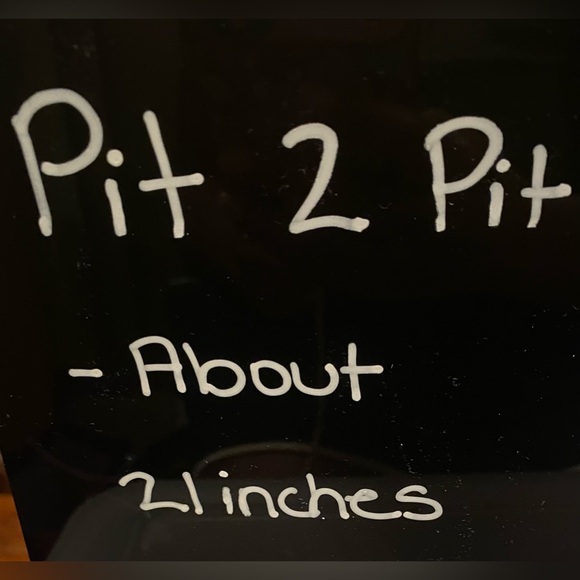 Pit 2 Pit
- About
21 inches